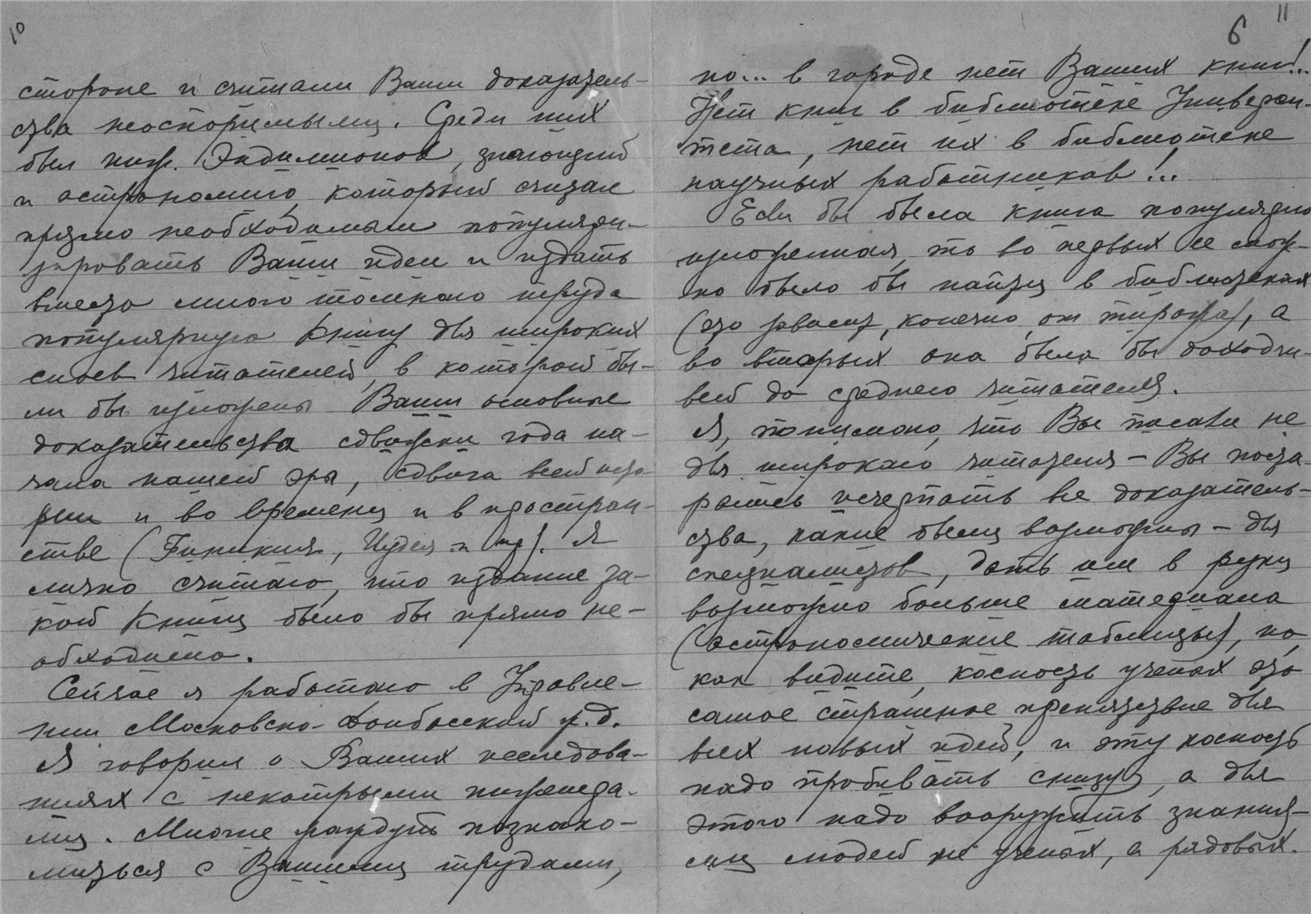 10
стороне и считали Ваши доказатель-
ства неоспоримыми. Среди них
был инж. Эндимионов, знающий
и астрономию, который считал
прямо необходимым популяри-
зировать Ваши идеи и издать
вместо много томного труда
популярную книгу для широких
слоев читателей, в которой бы-
ли бы изложены Ваши основные
доказательства сдвижки года на-
чала нашей эры, сдвига всей исто-
рии и во времени и в простран-
стве (Финикия, Иудея и пр). Я
лично считаю, что издание та-
кой книги было бы прямо не-
обходимо.
Сейчас я работаю в Управле-
нии Московско-Донбасской ж.д.
Я говорил о Ваших исследова-
ниях с некоторыми инженера-
ми. Многие жаждут познако-
миться с Вашими трудами,
6 11
но... в городе нет Ваших книг!..
Нет книг в библиотеке Универси-
тета, нет их в библиотеке
научных работников!..
Если бы была книга популярно
изложенная, то во первых ее мож-
но было бы найти в библиотеках
(это зависит, конечно, от тиража), а
во вторых она была бы доходчи-
вей до среднего читателя.
Я, понимаю, что Вы писали не
для широкаго читателя – Вы поста-
рались исчерпать все доказатель-
ства, какие были возможны – для
специалистов, дать им в руки
возможно больше материала
(астрономические таблицы), но,
как видите, косность ученых это
самое страшное препятствие для
всех новых идей, и эту косность
надо пробивать снизу, а для
этого надо вооружить знания-
ми людей не ученых, а рядовых.